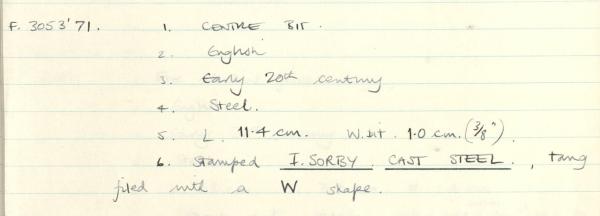 F. 3053'71. 1. CENTRE BIT.
2. English
3. Early 20th century
4. Steel.
5. L. 11.4 cm. W. bit. 1.0 cm. (3/8").
6. Stamped I. SORBY. CAST STEEL., tang
filed with a W shape.